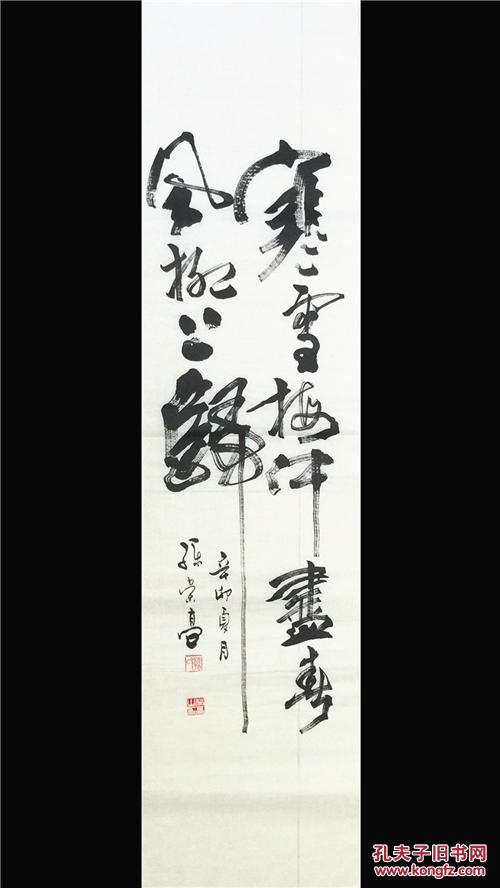 寒雪梅中盡春
風柳上歸
辛卯夏月
孫
孔夫子旧书网
www.kongfz.com